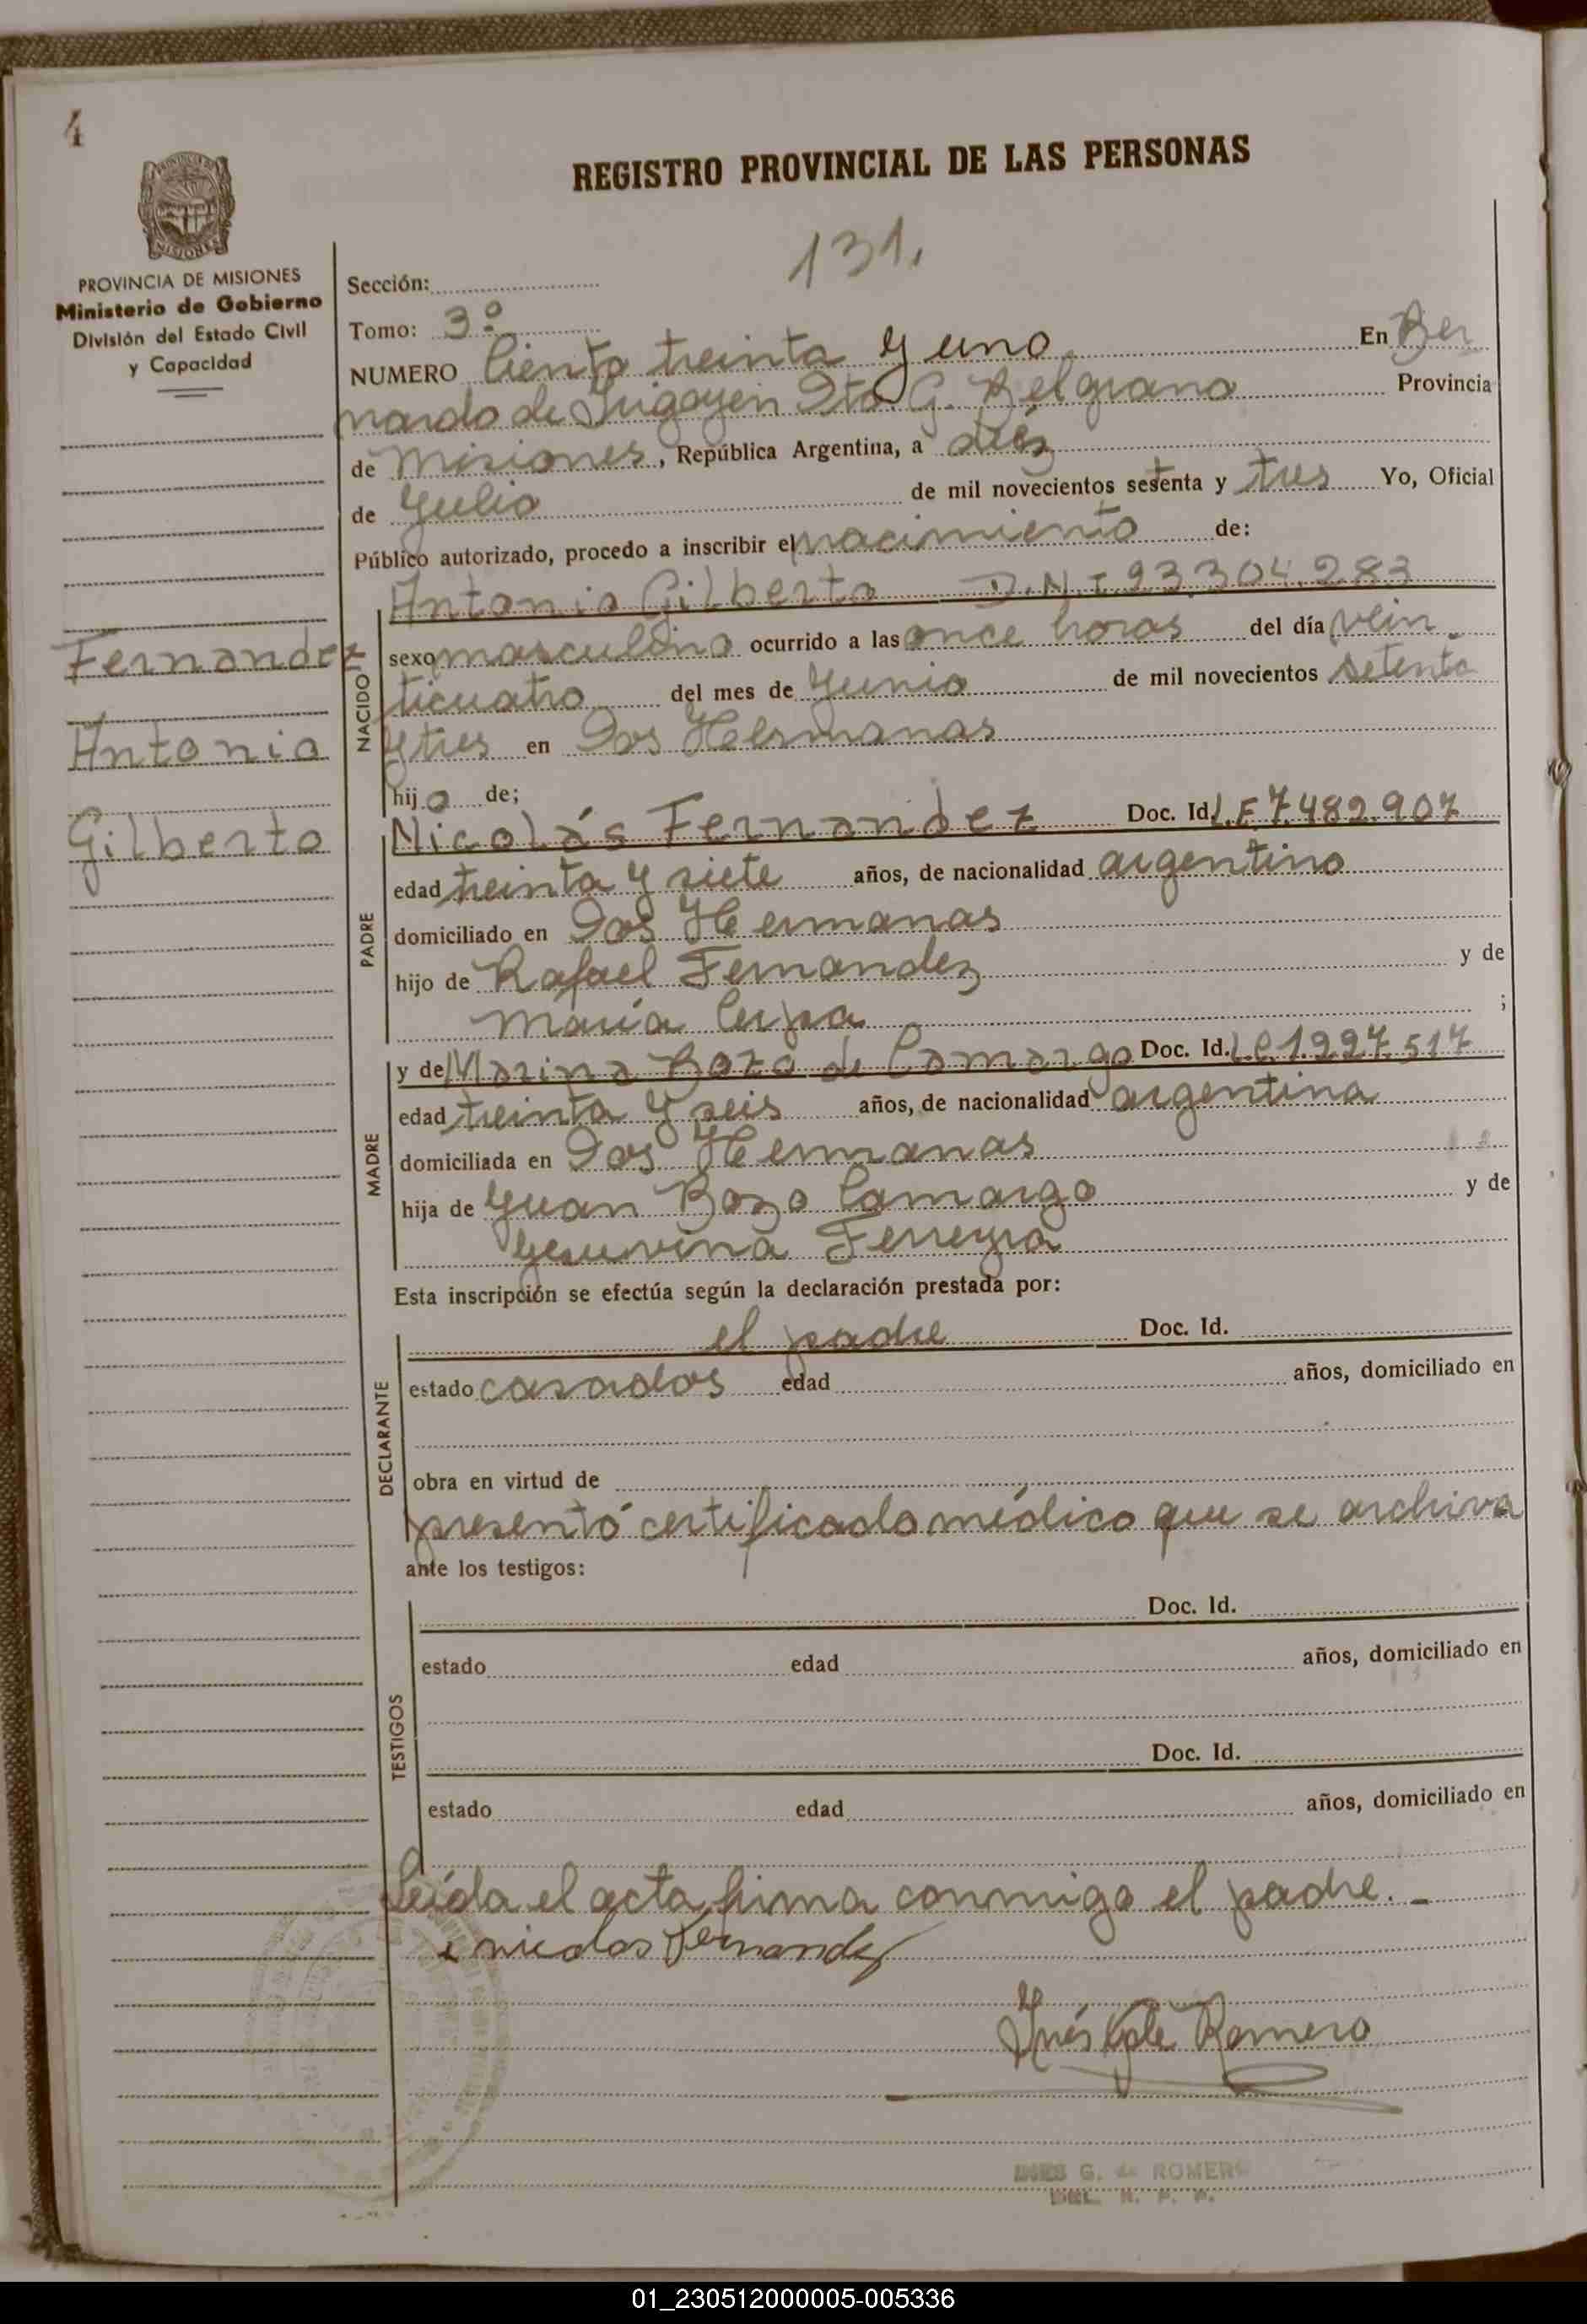 4
REGISTRO PROVINCIAL DE LAS PERSONAS
131.
PROVINCIA DE MISIONES
Ministerio de Gobierno
División del Estado Civil
y Capacidad
Sección:
Tomo: 3º
NUMERO Ciento treinta y uno En Ber
nardo de Irigoyen Dto. G. Belgrano Provincia
de Misiones, República Argentina, a diéz
de Julio de mil novecientos setenta y tres Yo, Oficial
Público autorizado, procedo a inscribir el nacimiento de:
Fernandez
Antonio
Gilberto
NACIDO
Antonio Gilberto D.N.I 23.304.283
sexo masculino ocurrido a las once horas del día vein
ticuatro del mes de Junio de mil novecientos setenta
y tres en Dos Hermanas
hijo de;
PADRE
Nicolás Fernandez Doc. Id. L.E 7.482.907
edad treinta y siete años, de nacionalidad argentino
domiciliado en Dos Hermanas
hijo de Rafael Fernandez y de
María ;
MADRE
y de Marina Bozo de Camargo Doc. Id. L.C 1.227.517
edad treinta y seis años, de nacionalidad argentina
domiciliada en Dos Hermanas
hija de Juan Bozo Camargo y de
Ferreyra
Esta inscripción se efectúa según la declaración prestada por:
DECLARANTE
el padre Doc. Id.
estado casados edad años, domiciliado en
obra en virtud de
presentó certificado médico que se archiva
ante los testigos:
TESTIGOS
Doc. Id.
estado edad años, domiciliado en
Doc. Id.
estado edad años, domiciliado en
Leída el acta firma conmigo el padre.
nicolas Fernandez
Inés Romero
INES G. de ROMERO
DEL. R. P. P.
01_230512000005-005336